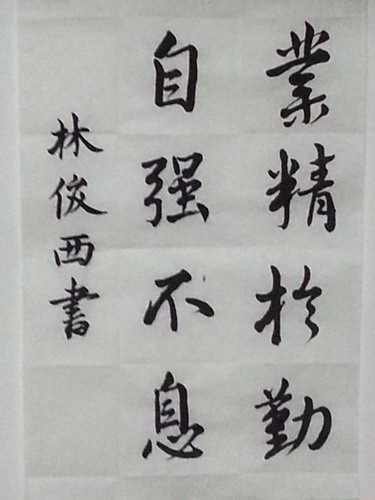 業精於勤
自强不息
林俊西書